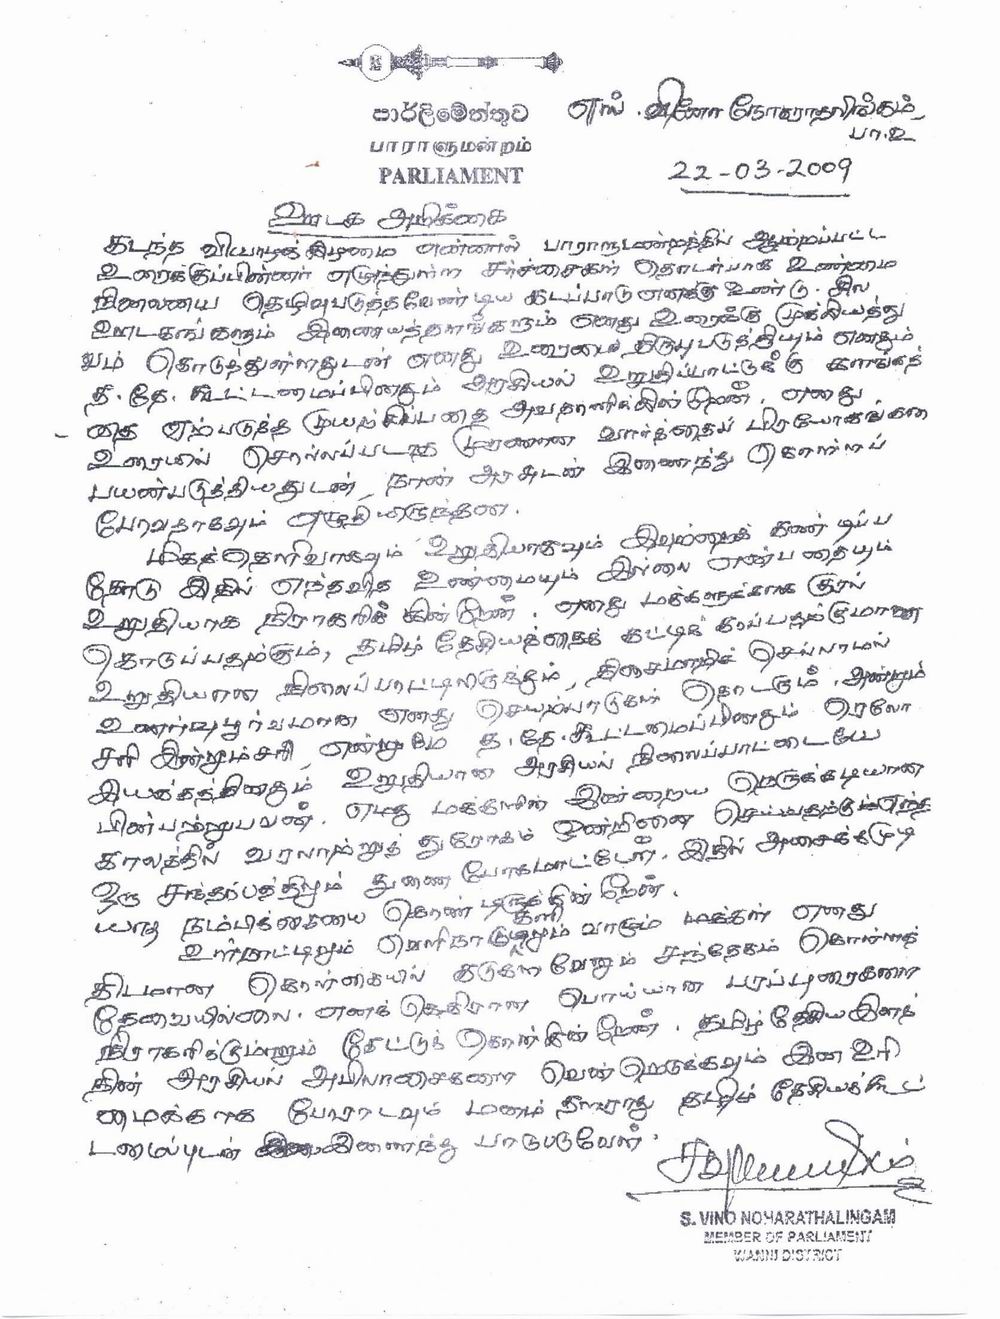 පාර්ලිමේන්තුව
பாராளுமன்றம்
PARLIAMENT
எஸ். வினோ நோகராதலிங்கம்,
பா.உ
22-03-2009
ஊடக அறிக்கை
கடந்த வியாழக்கிழமை என்னால் பாராளுமன்றத்தில் ஆற்றப்பட்ட
உரைக்குப்பின்னர் எழுந்துள்ள சர்ச்சைகள் தொடர்பாக உண்மை
நிலையை தெளிவுபடுத்தவேண்டிய கடப்பாடு எனக்கு உண்டு. சில
ஊடகங்களும் இணையத்தளங்களும் எனது உரைக்கு முக்கியத்து
வம் கொடுத்துள்ளதுடன் எனது உரையை திரிபுபடுத்தியும் எனதும்
த.தே. கூட்டமைப்பினதும் அரசியல் உறுதிப்பாட்டுக்கு களங்கத்
தை ஏற்படுத்த முயற்சிப்பதை அவதானிக்கின்றேன். எனது
உரையில் சொல்லப்படாத முரணான வார்த்தைப் பிரயோகங்களை
பயன்படுத்தியதுடன், நான் அரசுடன் இணைந்து கொள்ளப்
போவதாகவும் எழுதியிருந்தன.
மிகத்தெளிவாகவும் உறுதியாகவும் இவற்றைக் கண்டிப்ப
தோடு இதில் எந்தவித உண்மையும் இல்லை என்பதையும்
உறுதியாக நிராகரிக்கின்றேன். எனது மக்களுக்காக குரல்
கொடுப்பதற்கும், தமிழ் தேசியத்தைக் கட்டிக் காப்பதற்குமான
உறுதியான நிலைப்பாட்டிலிருந்தும், திசைமாறிச் செல்லாமல்
உணர்வுபூர்வமான எனது செயற்பாடுகள் தொடரும். அன்றும்
சரி இன்றும்சரி, என்றுமே த.தே.கூட்டமைப்பினதும் ரெலோ
இயக்கத்தினதும் உறுதியான அரசியல் நிலைப்பாட்டையே
பின்பற்றுபவன். எமது மக்களின் இன்றைய நெருக்கடியான
காலத்தில் வரலாற்றுத் துரோகம் ஒன்றினை செய்வதற்கும் எந்த
ஒரு சந்தர்ப்பத்திலும் துணை போகமாட்டேன். இதில் அசைக்கமுடி
யாத நம்பிக்கையை கொண்டிருக்கின்றேன்.
உள்நாட்டிலும் வெளிநாடுகளிலும் வாழும் மக்கள் எனது
திடமான கொள்கையில் கடுகளவேனும் சந்தேகம் கொள்ளத்
தேவையில்லை. எனக்கெதிரான பொய்யான பரப்புரைகளை
நிராகரிக்குமாறும் கேட்டுக் கொள்கின்றேன். தமிழ் தேசிய இனத்
தின் அரசியல் அபிலாசைகளை வென்றெடுக்கவும் இன உரி
மைக்காக போராடவும் மனம் தளராது தமிழ் தேசியக்கூட்
டமைப்புடன் இணைந்து பாடுபடுவேன்.
S. VINO NOHARATHALINGAM
MEMBER OF PARLIAMENT
WANNI DISTRICT